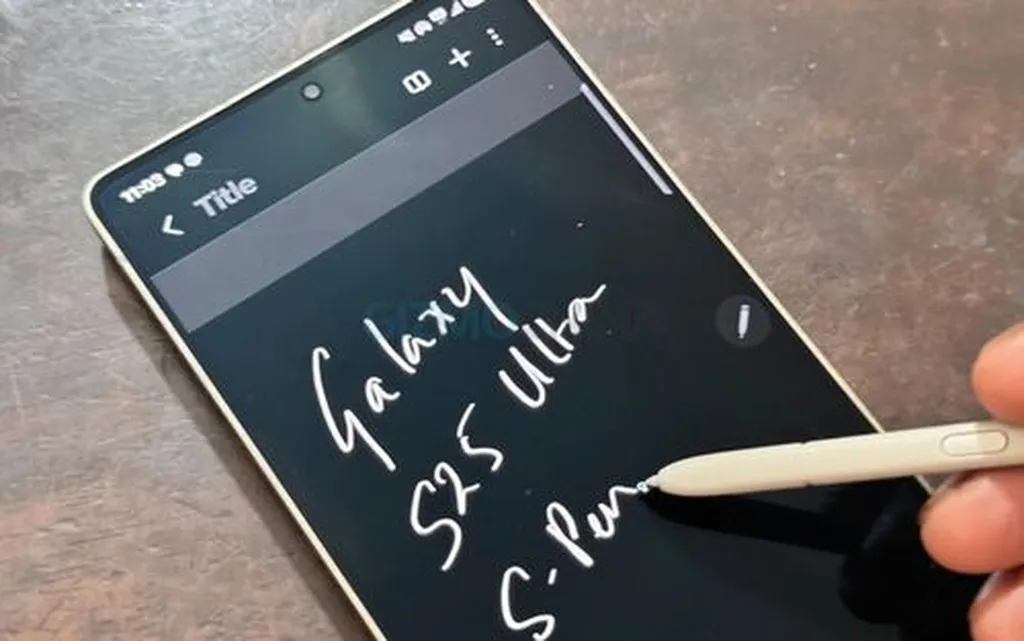 11:03
Title
Galaxy
S25 Ultra
S-Pen